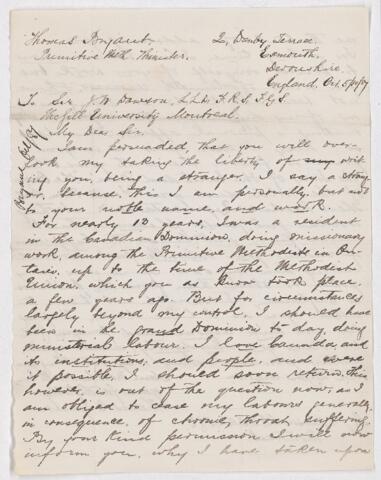 Thomas Bryant,
Primitive Meth. Minister.
2, Danby Terrace
Exmouth,
Devonshire,
England, Oct. 5/87
To Sir J. W. Dawson, L.L.D. F.R.S. F.G.S.
McGill University Montreal.
My Dear Sir,
I am persuaded, that you will over-
look my taking the liberty of writ-
ing you, being a stranger. I say a strang-
er, because, this I am personally but not
to your noble name, and work.
For nearly 13 years, I was a resident
in the Canadian Dominion, doing missionary
work, among the Primitive Methodists in On-
tario, up to the time of the Methodist
Union, which you as know took place
a few years ago. But for circumstances
largely beyond my control, I should have
been in the grand Dominion to day, doing
ministerial labour. I love Canada, and
its institutions, and people, and were
it possible, I should soon return. This
however is out of the question now, as I
am obliged to cease my labours generally,
in consequence, of chronic, throat suffering.
By your kind permission I will now
inform you, why I have taken upon